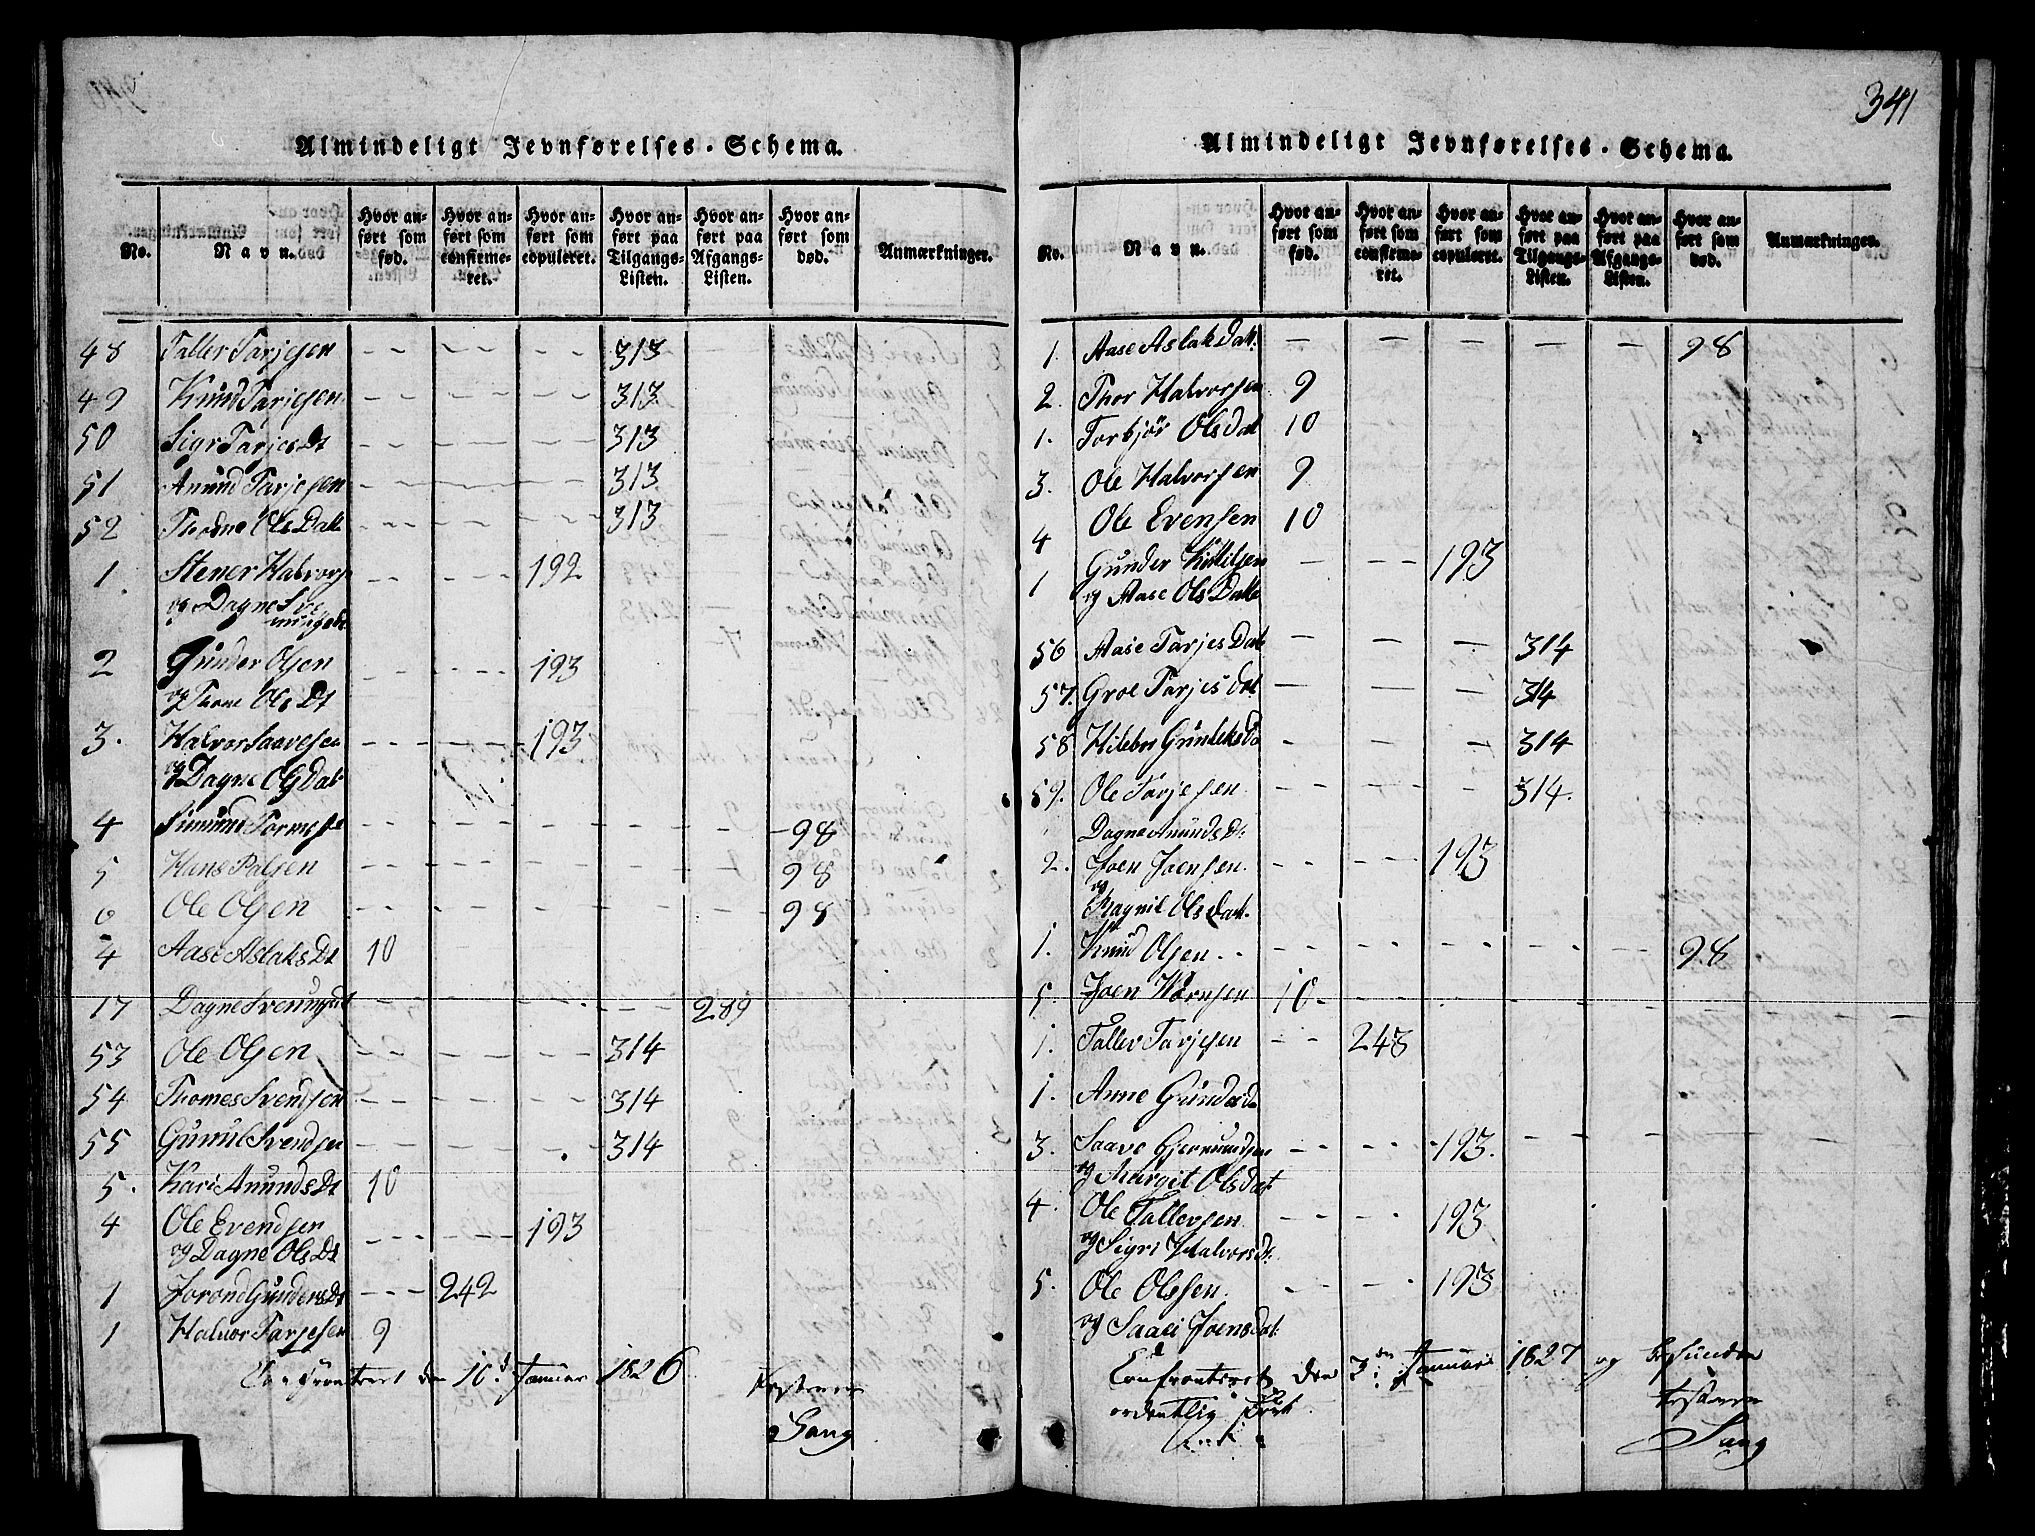 Almindeligt Jevnførelses-Schema.
No. Navn. Hvor anført som fød. Hvor anført som confirmeret. Hvor anført som copuleret. Hvor anført paa Tilgangs-Listen. Hvor anført paa Afgangs-Listen. Hvor anført som død. Anmærkninger.
48 Taller Tarjesen 313
49 Knud Tarjesen 313
50 Sigr Tarjes Dt 313
51 Anund Tarjesen 313
52 Thorne Ols Datt 313
1 Stener Halvors 192
og Dagne Sve
nungsdt
2 Gunder Olsen 193
og Thone Ols Dt
3. Halvor Saavesen 193
og Dagne Ols Dat
4 Simund Tormose 98
5 Hans Palsen 98
6 Ole Olsen 98
4 Aase Aslaks Dt 10
17 Dagne Svenungsdt 289
53 Ole Olsen 314
54 Thomes Svendsen 314
55 Gunul Svendsen 314
5. Kari Anunds Dt 10
4 Ole Evendsen 193
og Dagne Ols Dt
1 Jorond Gunders Dt 242
1 Halvor Tarjesen 9
Confronteret den 10d Januar 1826
Gang
341
Almindeligt Jevnførelses-Schema.
No. Navn. Hvor anført som fød. Hvor anført som confirmeret. Hvor anført som copuleret. Hvor anført paa Tilgangs-Listen. Hvor anført paa Afgangs-Listen. Hvor anført som død. Anmærkninger.
1. Aase Aslak Dat. 98
2. Thor Halvorsen 9
1. Torbjör Olsdat 10
3. Ole Halvorsen 9
4 Ole Evensen 10
1 Gunder Kittilsen 193
og Aase Ols Datt
56 Aase Tarjes Dat 314
57. Groe Tarjes dat 314
58 Hilebor Gunleks D 314
59. Ole Tarjesen 314.
Dagne Anunds Dt.
2. Joen Joensen 193
og
Ragnil Ols Datt.
1. Knud Olsen 98
5. Joen Hornsen 10
1. Taller Tarjesen 243
1. Anne Gundersd
3. Saave Gjermundsen 193.
og Margit Olsdat
4. Ole Tallevsen 193
og Sigri Halvorsdt.
5. Ole Olssen 193
og Saaei Joensdat
Confronteret den 3den Januari 1827 og befunden
ordentlig ført
Gang